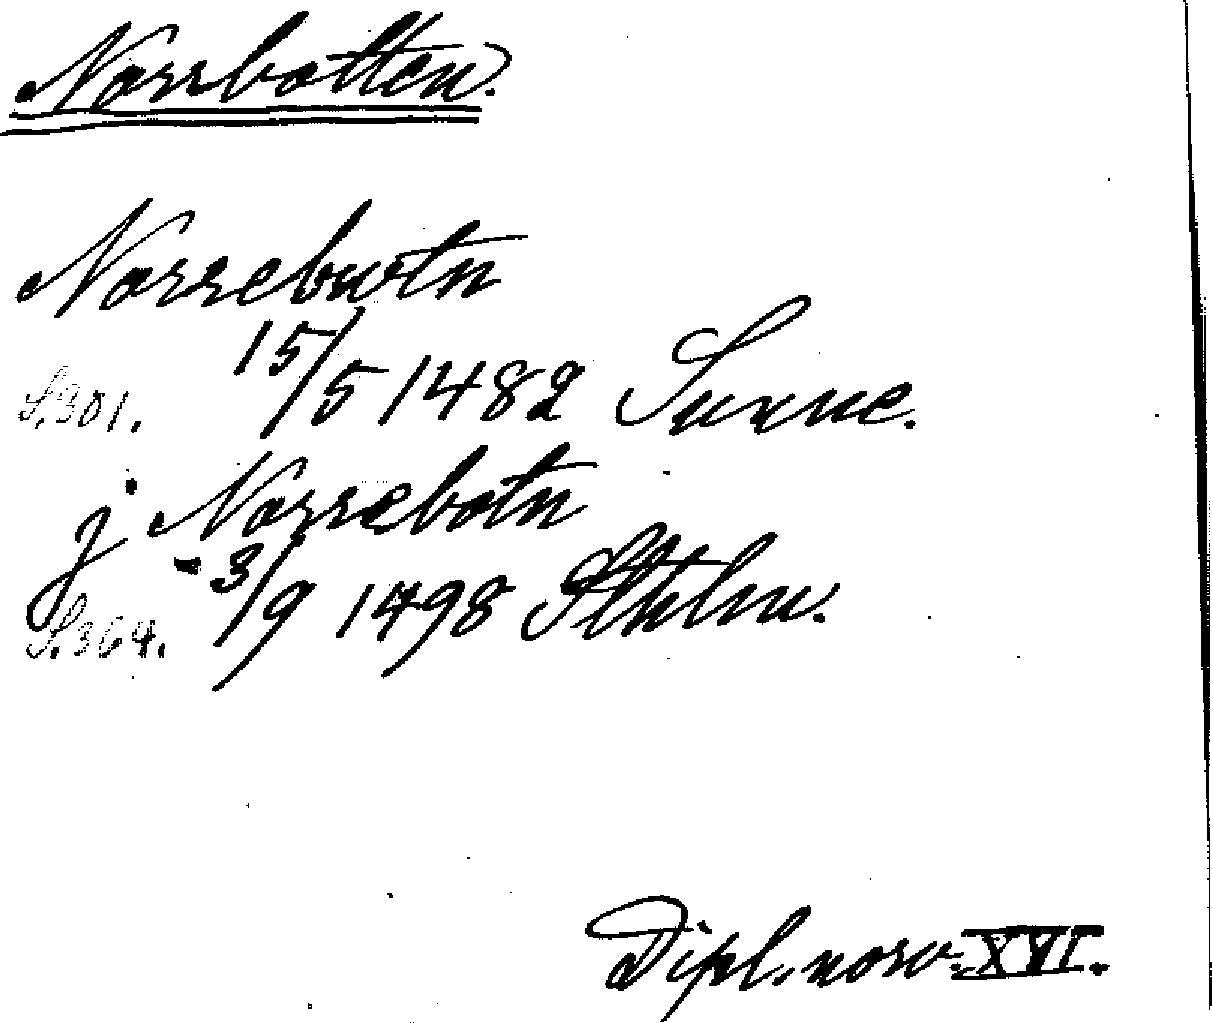 Norrbotten.
Norrebutn
15/5 1482 Sunne.
S.301.
j Norrebotn
3/9 1498 Sthlm.
S.364.
Dipl. norv. XVI.